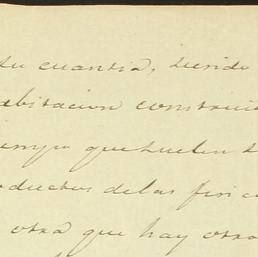 su cuantia, siendo
abitacion construi
iempo que suelen
oductos de las fin
otra que hay otro